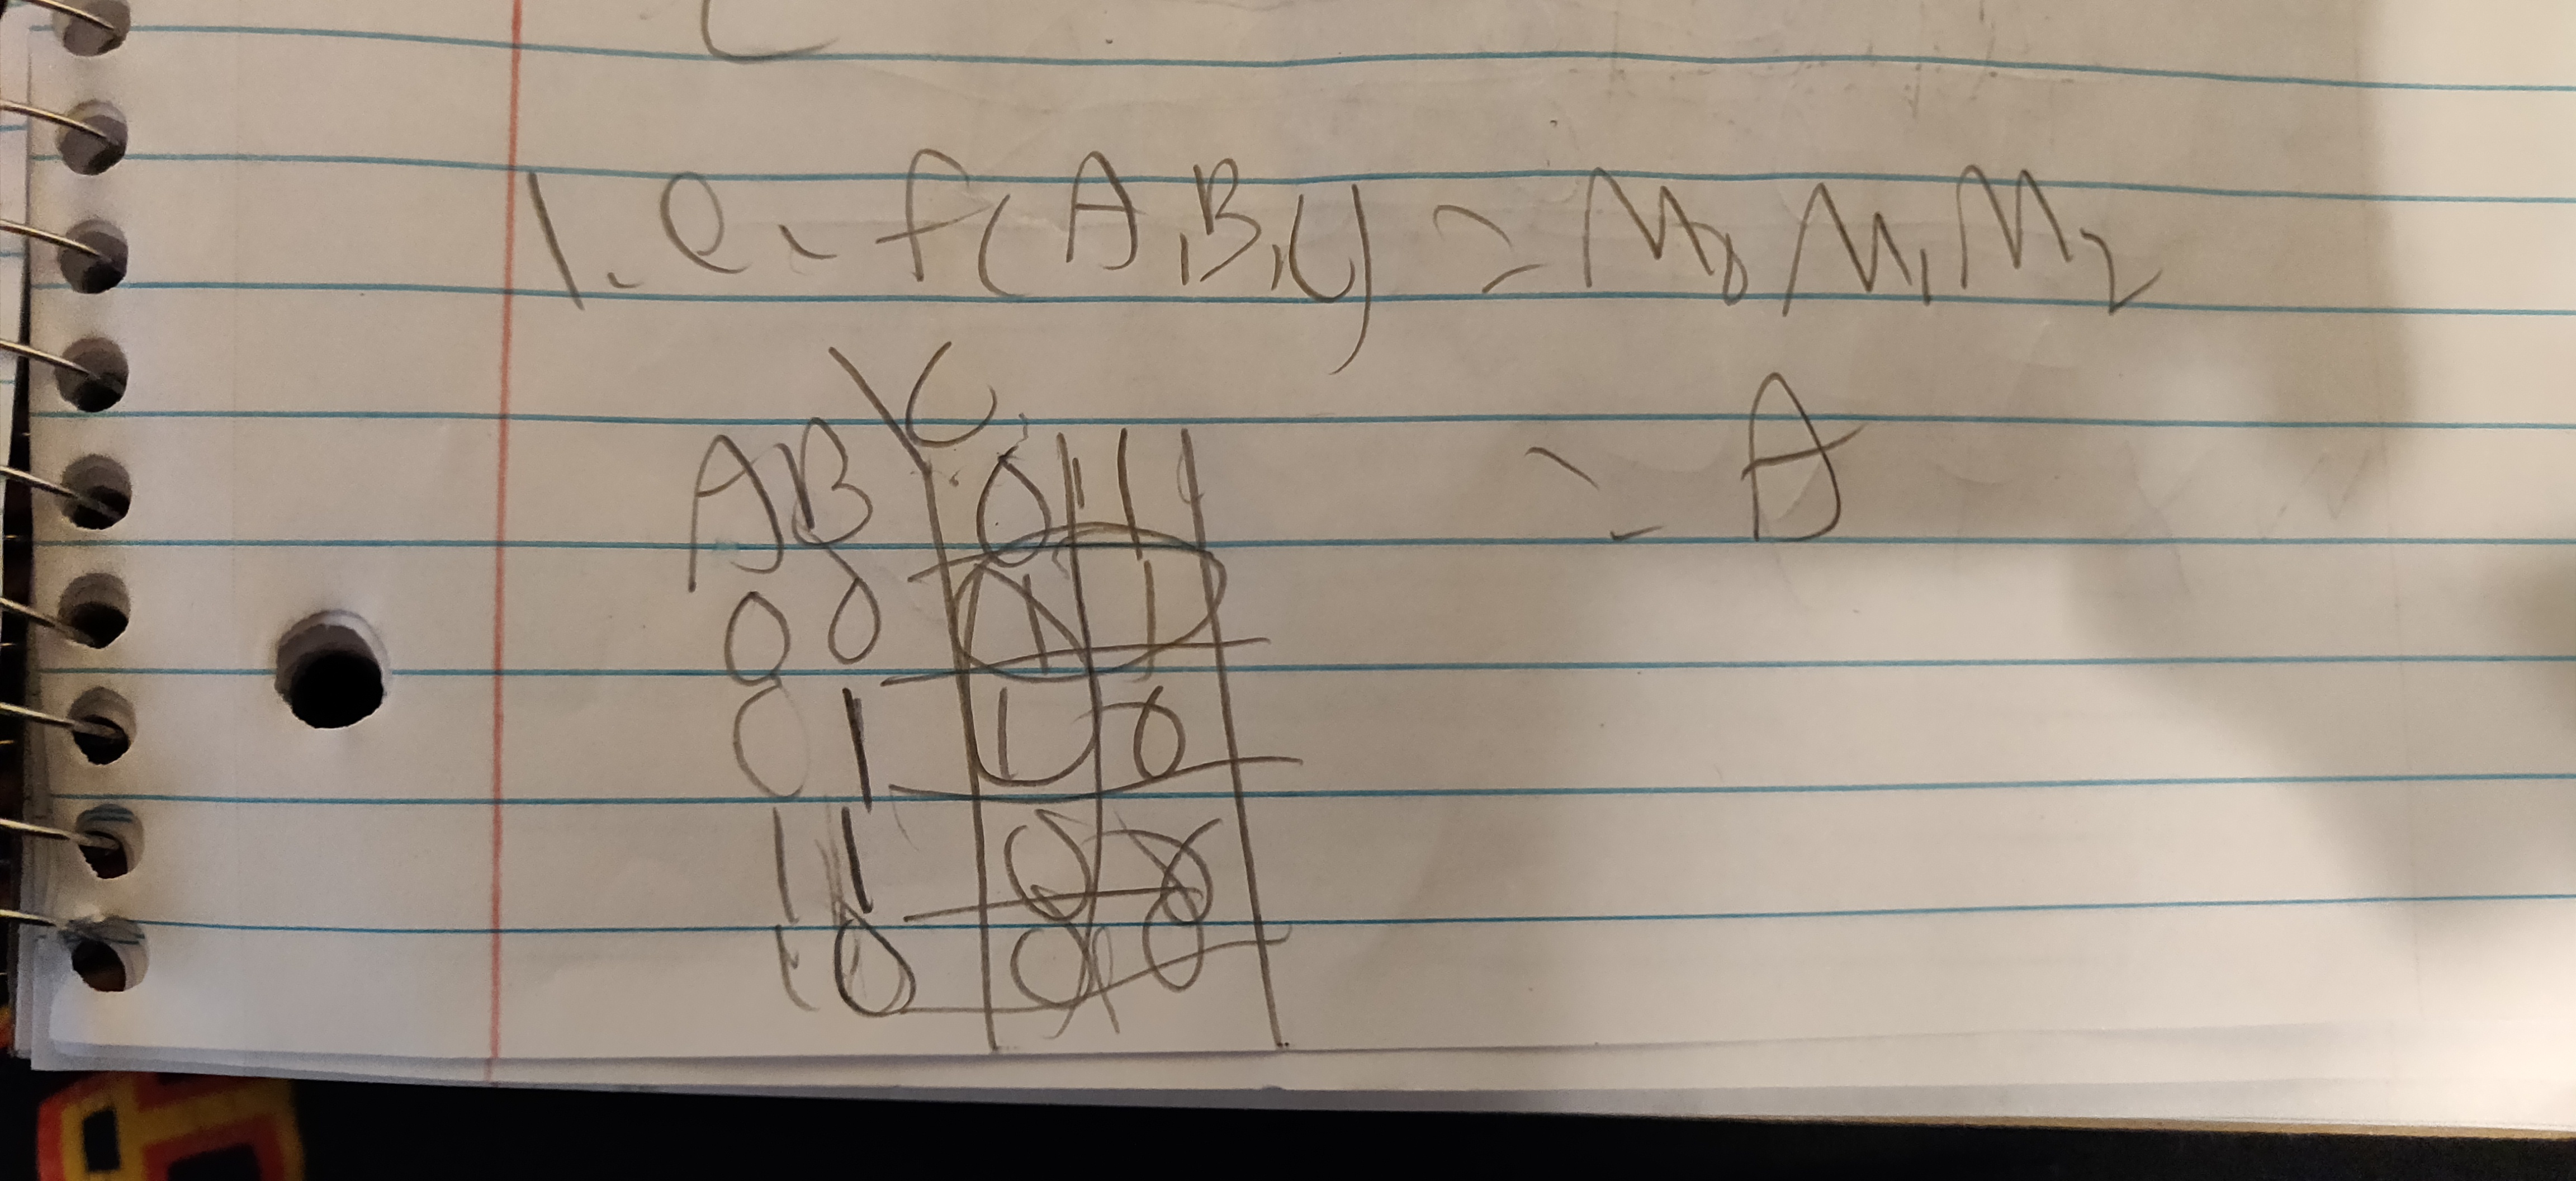 1.e. f(A,B,C) = M0 M1 M2
= A
AB\C 0 1
0 0 1 1
0 1 1 0
1 1 0 0
1 0 0 0